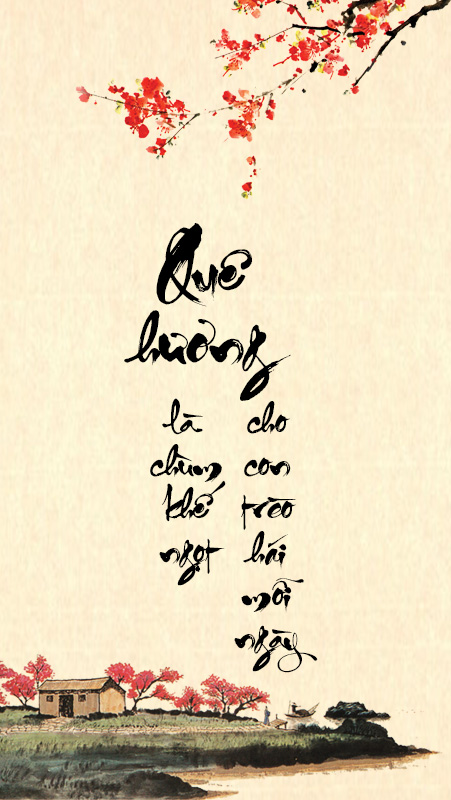 Quê
hương
là
chùm
khế
ngọt
cho
con
trèo
hái
mỗi
ngày